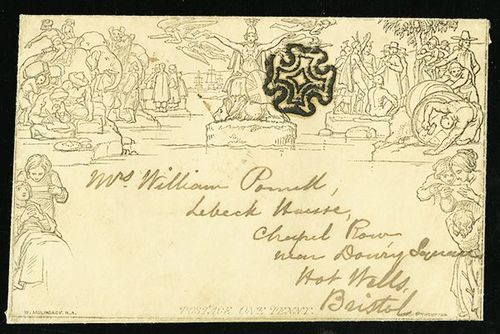 Mrs William Powell,
Lebeck House,
Chapel Row
near Dowry Square
Hot Wells,
Bristol
POSTAGE ONE PENNY.
W. MULREADY. R.A.